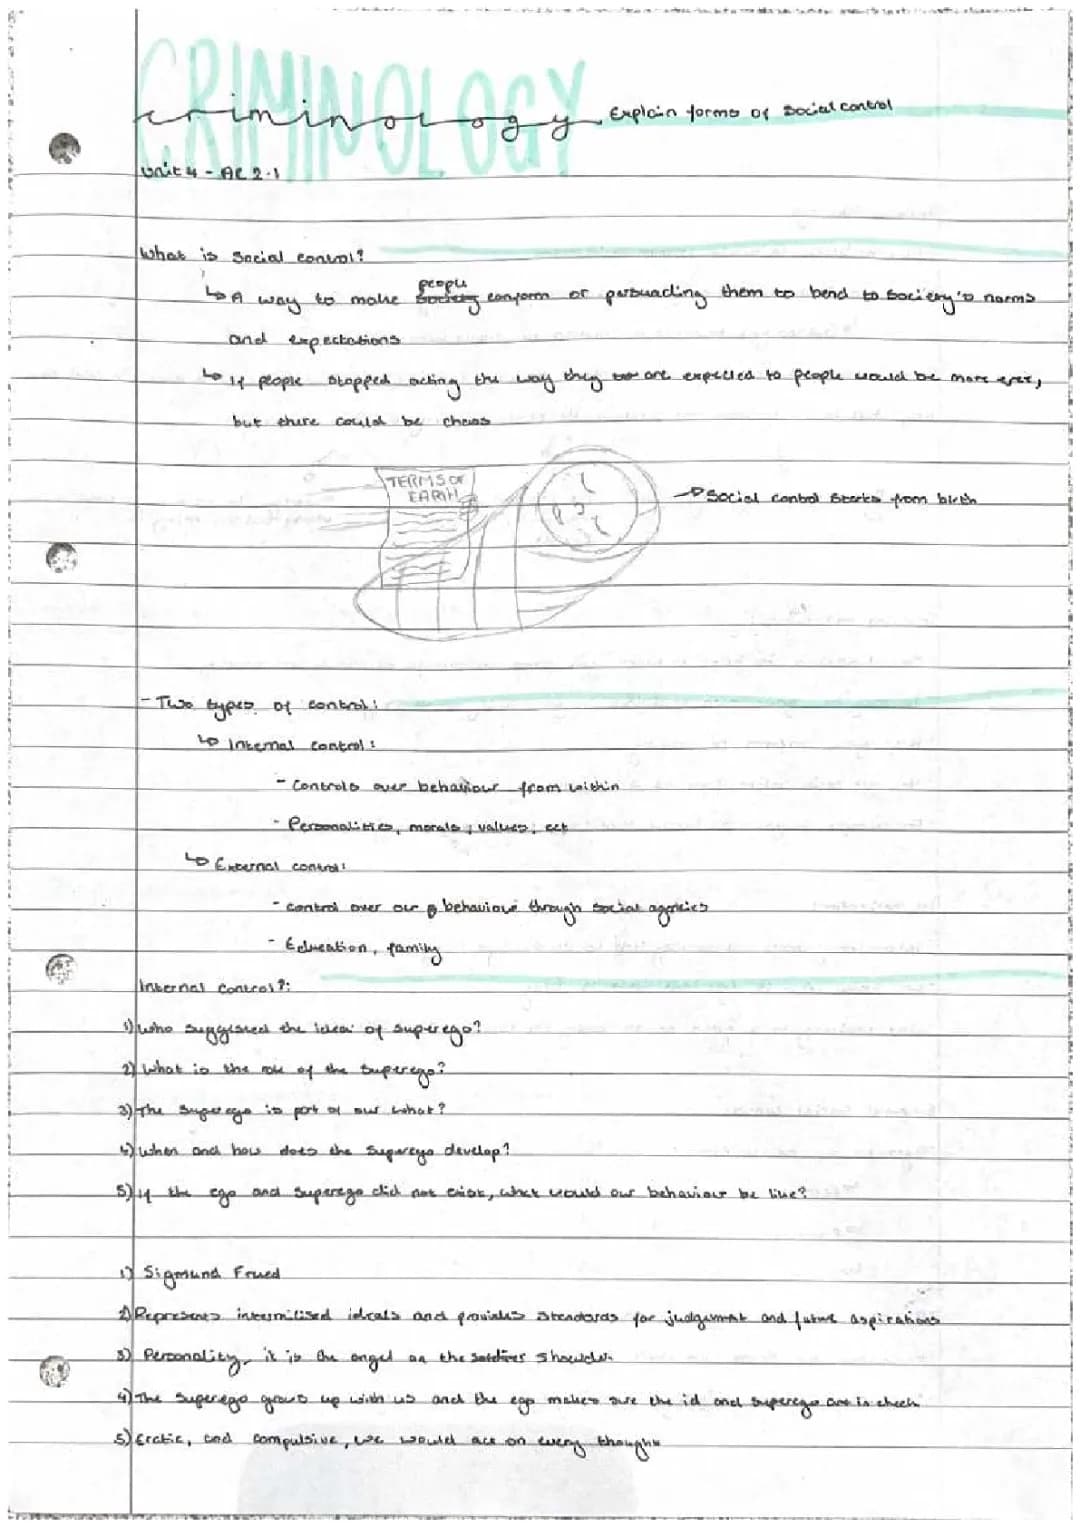 CRIMINOLOGY
criminology Explain forms of social control
Unit 4 - AC 2.1
What is social control?
people
↳ A way to make society conform or persuading them to bend to society's norms
and expectations
↳ If people stopped acting the way they are expected to people would be more free,
but there could be chaos
TERMS OF
EARTH
→ Social control starts from birth
- Two types of control:
↳ Internal control:
- Controls over behaviour from within
- Personalities, morals, values, ect
↳ External control:
- control over our behaviour through social agencies
- Education, family
Internal control?:
1) Who suggested the idea of superego?
2) What is the role of the superego?
3) The superego is part of our what?
4) When and how does the superego develop?
5) If the ego and superego did not exist, what would our behaviour be like?
1) Sigmund Frued
2) Represents internilised ideals and provides standards for judgement and future aspirations
3) Personality, it is the angel on the shoulder.
4) The superego grows up with us and the ego makes sure the id and superego are in check
5) Eratic, and compulsive, we would act on every thought